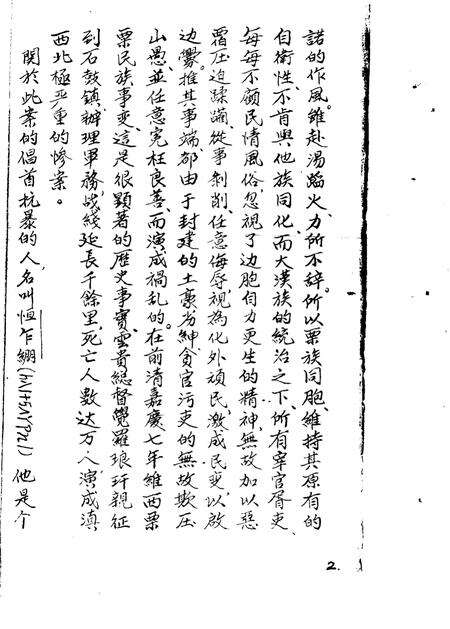 諾的作風。雖赴湯蹈火、力所不辭。所以栗族同胞、維持其原有的
自衛性、不肯與他族同化、而大漢族的統治之下、所有宰官胥吏、
每每不顧民情風俗、忽視了边胞自力更生的精神、無故加以惡
霸压迫蹂躪、從事剝削、任意侮辱、視為化外頑民、激成民变、以啟
边釁。推其事端、都由于封建的土豪劣紳、貪官污吏的無故欺压
山愚、並任意冤枉良善、而演成禍乱的。在前清嘉慶七年維西栗
栗民族事变、這是很顯著的歷史事實、雲貴總督覺羅琅玕親征
到石鼓鎮、辦理軍務、战綫延長千餘里、死亡人數达万人、演成滇
西北極严重的惨案。
関於此案的倡首抗暴的人、名叫恒乍繃 他是个
2.